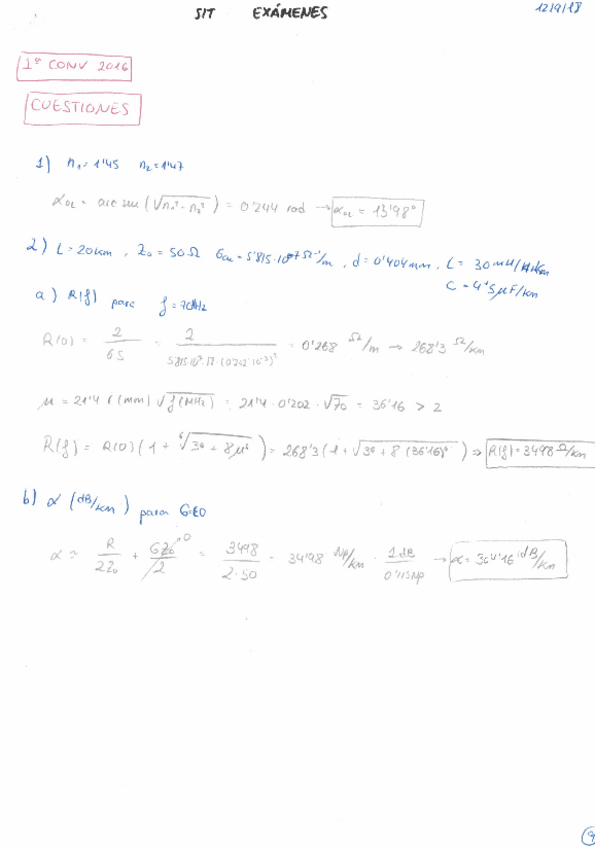 SIT EXÁMENES 12/9/18
1ª CONV 2016
CUESTIONES
1) n₁=1'45 n₂=1'47
α₀L = arc sen (√n₁² - n₂²) = 0'244 rad → α₀L = 13'98°
2) L=20km, Z₀=50Ω σcu=5'815·10⁷ Ω⁻¹/m, d=0'404mm, L= 30 mH/km
C=4'5μF/km
a) R(f) para f=70MHz
R(0) = 2/GS = 2/(5'815·10⁷·π·(0'202·10⁻³)²) = 0'268 Ω/m → 268'3 Ω/km
μ = 21'4 r(mm) √f(MHz) = 21'4·0'202·√70 = 36'16 > 2
R(f) = R(0)(1 + ⁶√36 + 8μ⁶) = 268'3(1+√36 + 8(36'16)⁶) ⇒ R(f)=3498 Ω/km
b) α (dB/km) para G=0
α ≈ R/2Z₀ + GZ₀/2 ⁰ = 3498/2·50 = 34'98 Np/km · 1dB/0'115Np → α=304'16 dB/km